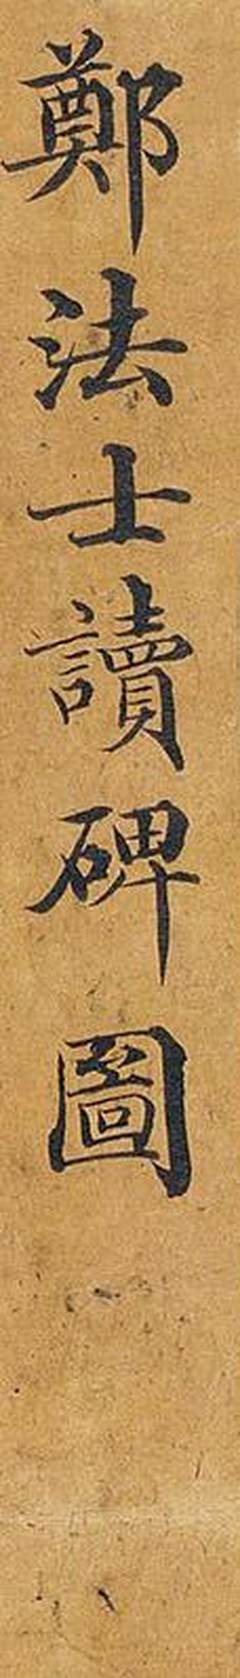 鄭法士讀碑圖